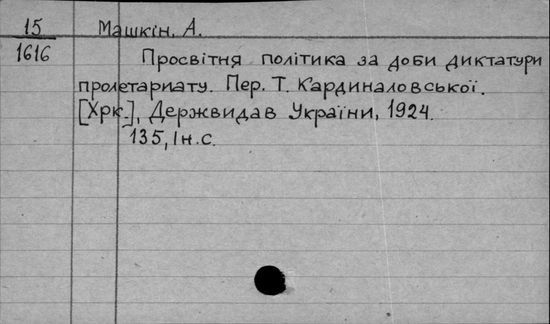 15 Машкін, А.
1616 Просвітня політика за доби диктатури
пролетариату. Пер. Т. Кардиналовської.
[Хрк.], Держвидав України, 1924.
135, 1 н. с.